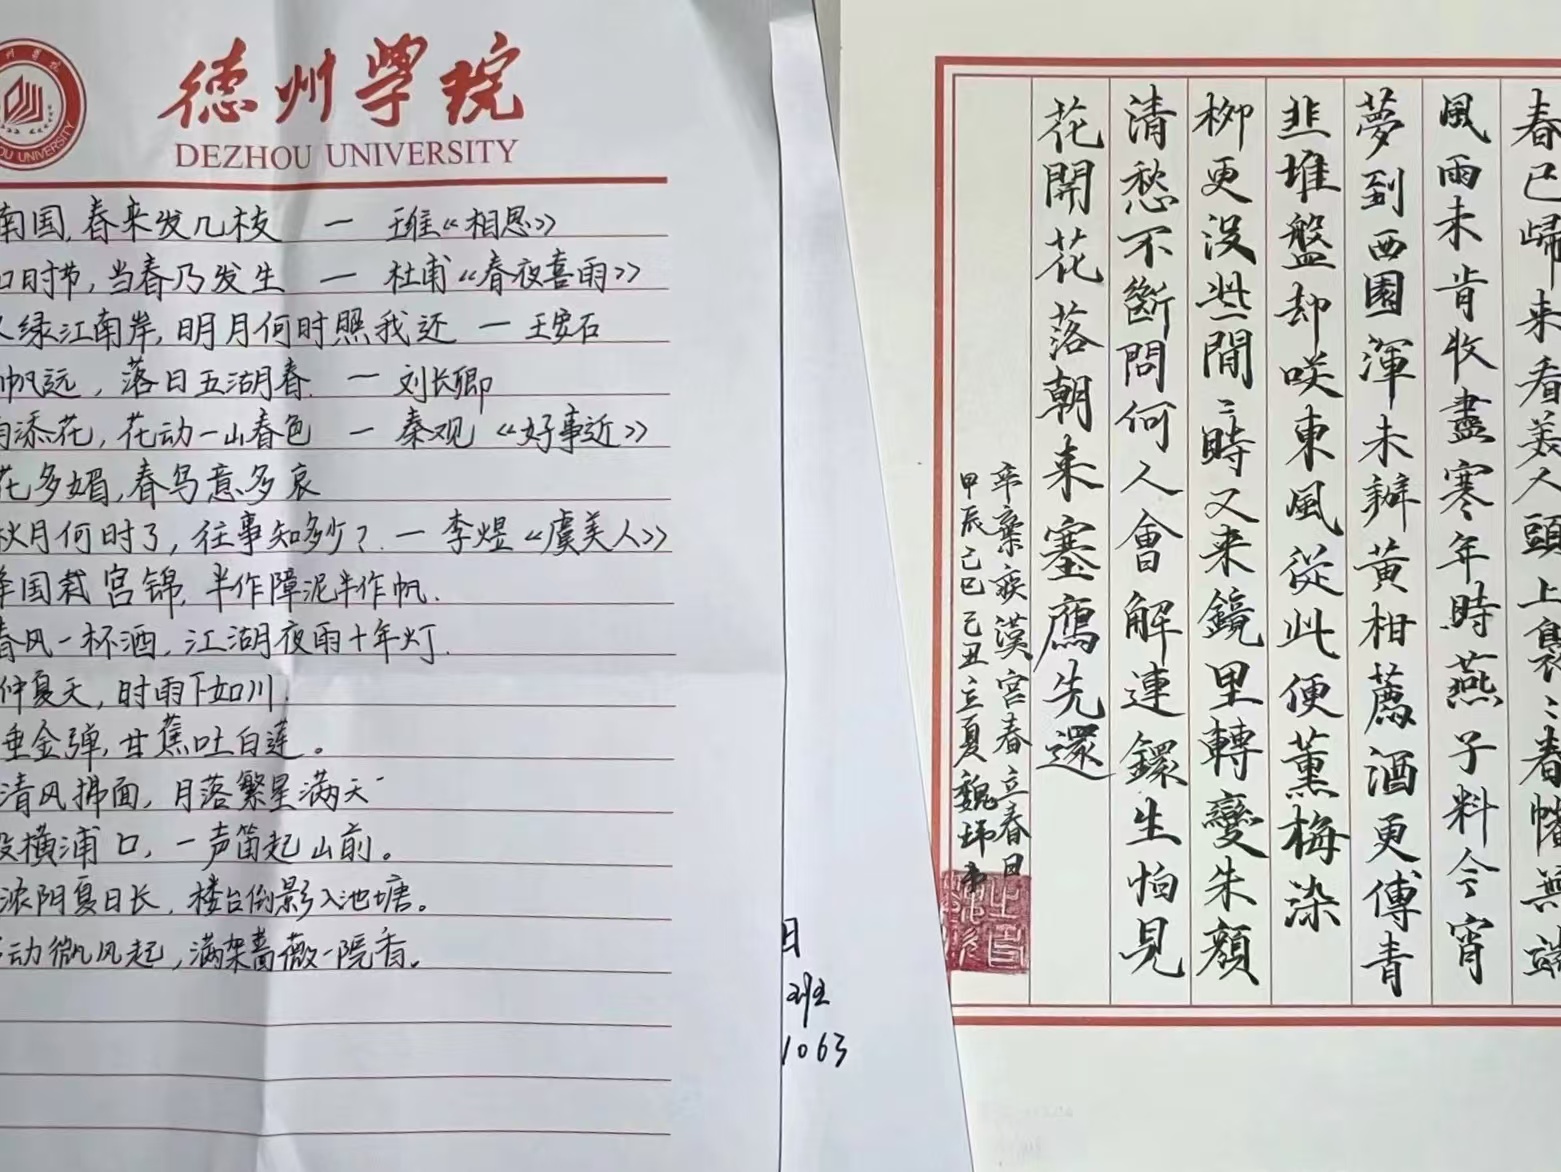 德州学院
DEZHOU UNIVERSITY
南国,春来发几枝 — 王维《相思》
时节,当春乃发生 — 杜甫《春夜喜雨》
绿江南岸,明月何时照我还 — 王安石
帆远,落日五湖春. — 刘长卿
添花,花动一山春色 — 秦观《好事近》
花多媚,春鸟意多哀
秋月何时了,往事知多少?. — 李煜《虞美人》
国裁宫锦,半作障泥半作帆.
春风一杯酒,江湖夜雨十年灯.
仲夏天,时雨下如川.
垂金弹,甘蕉吐白莲。
清风拂面,月落繁星满天
横浦口,一声笛起山前。
浓阴夏日长,楼台倒影入池塘。
动微风起,满架蔷薇一院香。
日
班
1063
春已歸来看美人頭上裊〻春幡無端
風雨未肯收盡寒年時燕子料今宵
夢到西園渾未辦黃柑薦酒更傳青
韭堆盤却咲東風從此便薰梅染
柳更没些閒〻時又来鏡里轉變朱顏
清愁不斷問何人會解連鐶生怕見
花開花落朝来塞鴈先還
辛棄疾漢宮春立春日
甲辰己巳己丑立夏魏